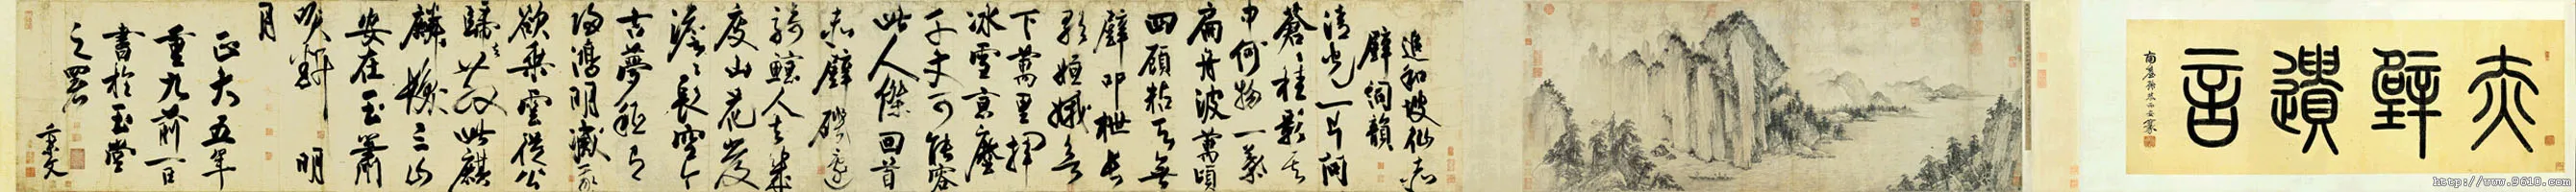 赤壁遺言
追和坡仙赤
壁詞韻
清光一片問
蒼々桂影其
中何物一葉
扁舟波萬頃
四顧粘天無
壁叩枻長
歌姮娥欲
下萬里揮
冰雪京塵
千丈可能容
此人傑回首
赤壁磯邊
騎鯨人去幾
度山花發
澹々長空今
古夢秖有
歸鴻明滅我
欲乘雲從公
歸去散此麒
麟髮三山
安在玉簫
吹斷明
月
正大五年
重九前一日
書於玉堂
之署
秉文
http://www.9610.com